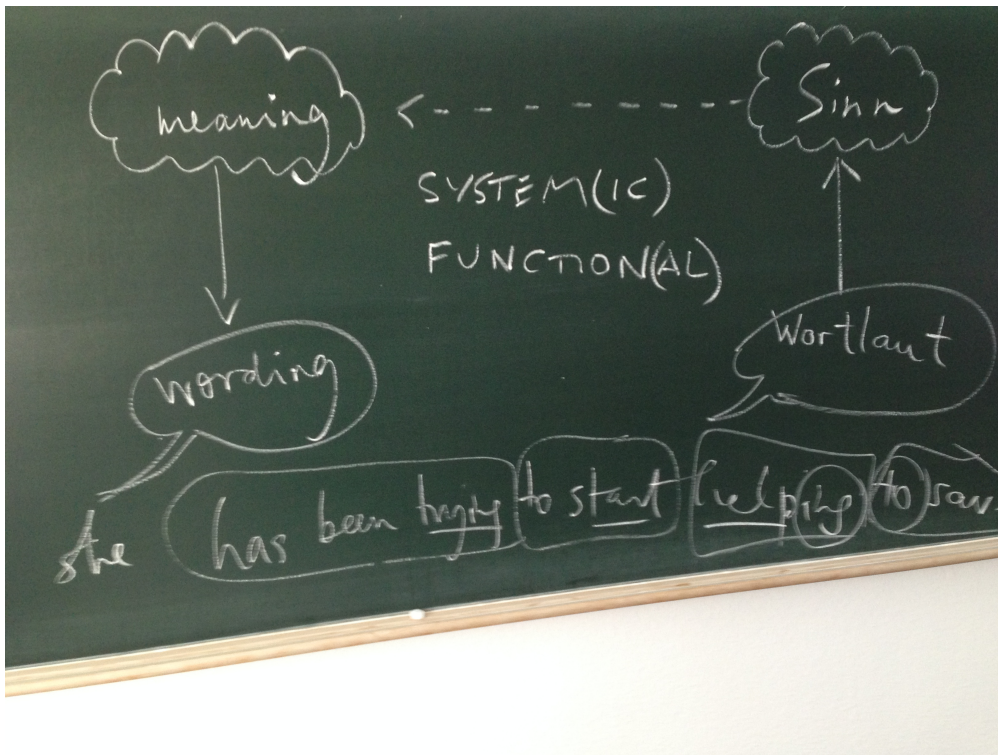 meaning
Sinn
SYSTEM(IC)
FUNCTION(AL)
wording
Wortlaut
she has been trying to start helping to